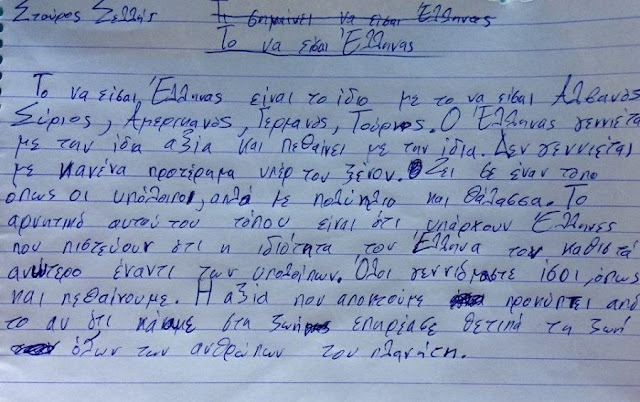 Σταύρος Σελλής
Τι σημαίνει να είσαι Έλληνας
Το να είσαι Έλληνας
Το να είσαι Έλληνας είναι το ίδιο με το να είσαι Αλβανός
Σύριος, Αμερικανός, Γερμανός, Τούρκος. Ο Έλληνας γεννιέται
με την ίδια αξία και πεθαίνει με την ίδια. Δεν γεννιέται
με κανένα προτέρημα υπέρ του ξένου. Ζει σε έναν τόπο
όπως οι υπόλοιποι, απλά με πολύ ήλιο και θάλασσα. Το
αρνητικό αυτού του τόπου είναι ότι υπάρχουν Έλληνες
που πιστεύουν ότι η ιδιότητα του Έλληνα τον καθιστά
ανώτερο έναντι των υπολοίπων. Όλοι γεννιόμαστε ίσοι, όπως
και πεθαίνουμε. Η αξία που αποκτούμε προκύπτει από
το αν ότι κάναμε στη ζωή επηρέασε θετικά τη ζωή
όλων των ανθρώπων του πλανήτη.